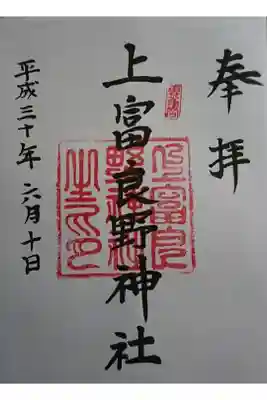 奉拝
上富良野神社
上富良野神社之印
平成三十年六月十日